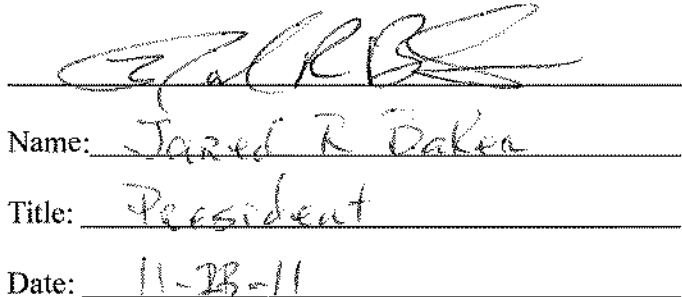 Name: Jared R Baker
Title: President
Date: 11-28-11